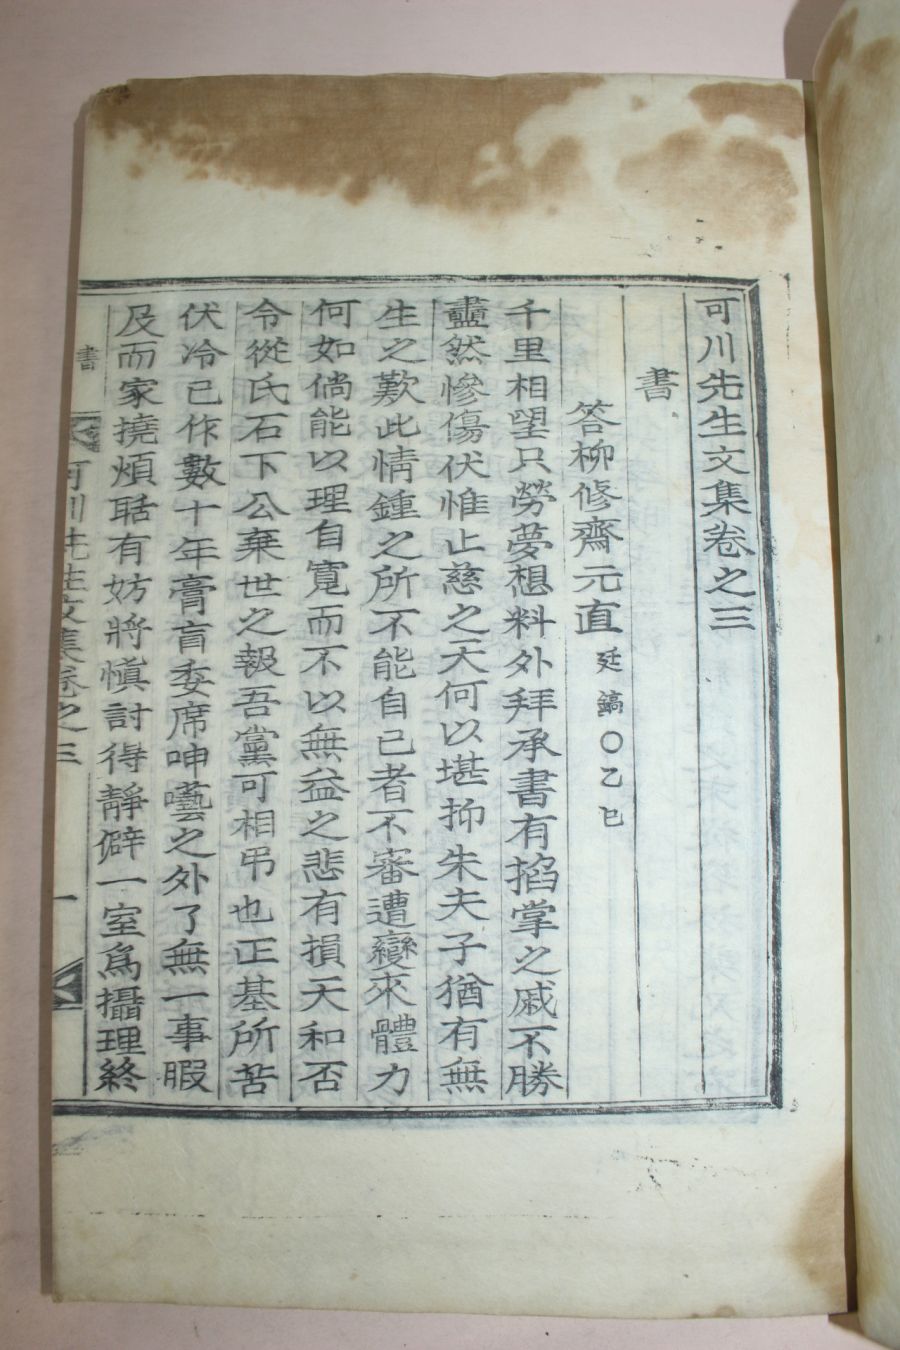 可川先生文集卷之三
書
答柳修齋元直 廷鎬○乙巳
千里相望只勞夢想料外拜承書有掐掌之戚不勝
衋然慘傷伏惟止慈之天何以堪抑朱夫子猶有無
生之歎此情鍾之所不能自已者不審遭變來體力
何如倘能以理自寬而不以無益之悲有損天和否
令從氏石下公棄世之報吾黨可相弔也正基所苦
伏冷已作數十年膏肓委席呻囈之外了無一事暇
及而家撓煩聒有妨將愼討得靜僻一室爲攝理終
書 可川先生文集卷之三 一